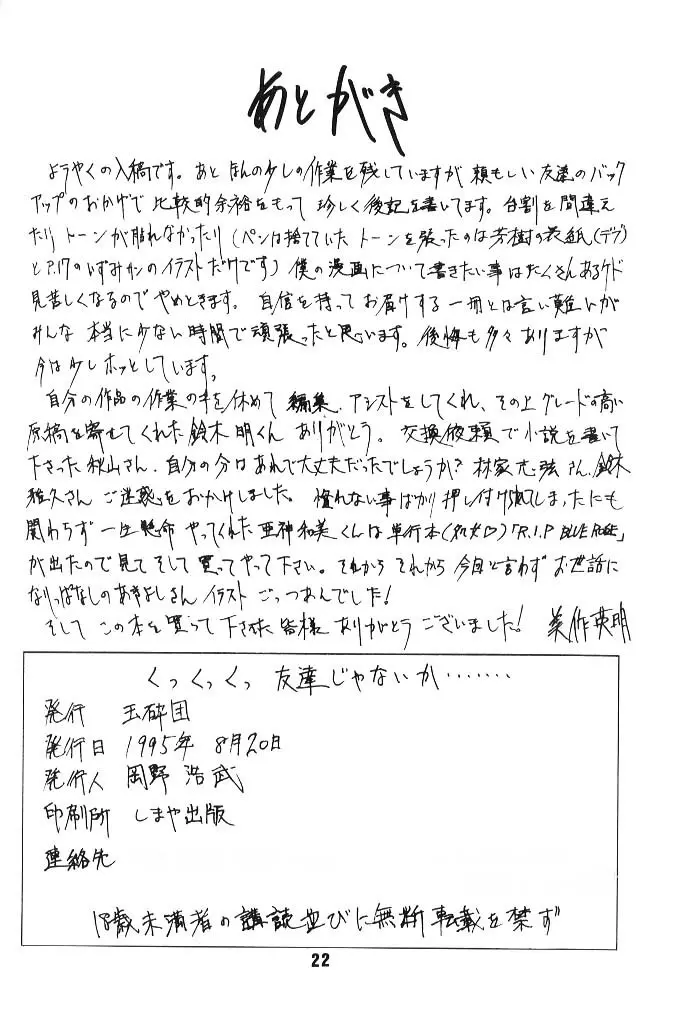 あとがき
ようやくの入稿です。あと ほんの少しの作業を残していますが 頼もしい友達のバック
アップのおかげで 比較的余裕をもって 珍しく後記を書いてます。台割を間違え
たり トーンが貼れなかったり(ペンは捨てていた トーンを張ったのは芳樹の表紙(デブ)
とP.17のいずみかのイラストだけです) 僕の漫画について書きたい事はたくさんあるケド
見苦しくなるのでやめときます。自信を持ってお届けする一冊とは言い難いが
みんな 本当に少ない時間で頑張ったと思います。後悔も多々ありますが
今は少しホッとしています。
自分の作品の作業の手を休めて 編集、アシストをしてくれ、その上グレードの高い
原稿を寄せてくれた鈴木明くん ありがとう。交換依頼で小説を書いて
下さった秋山さん、自分の分はあれで大丈夫だったでしょうか? 林家志弦さん、鈴木
雅久さん ご迷惑をおかけしました。慣れない事ばかり押し付けられてしまったにも
関わらず 一生懸命 やってくれた亜神和美くんは単行本(処女♡)「R.I.P BLUE ROSE」
が出たので見て そして 買ってやって下さい。それから それから 今回と言わず お世話に
なりっぱなしのあきよしさん イラスト ごっつあんでした!
そして この本を買って下された皆様 ありがとう ございました! 美作英明
くっくっくっ 友達じゃないか・・・・・・・
発行 玉砕団
発行日 1995年 8月20日
発行人 岡野 浩武
印刷所 しまや出版
連絡先
18歳未満者の講読並びに無断転載を禁ず
22